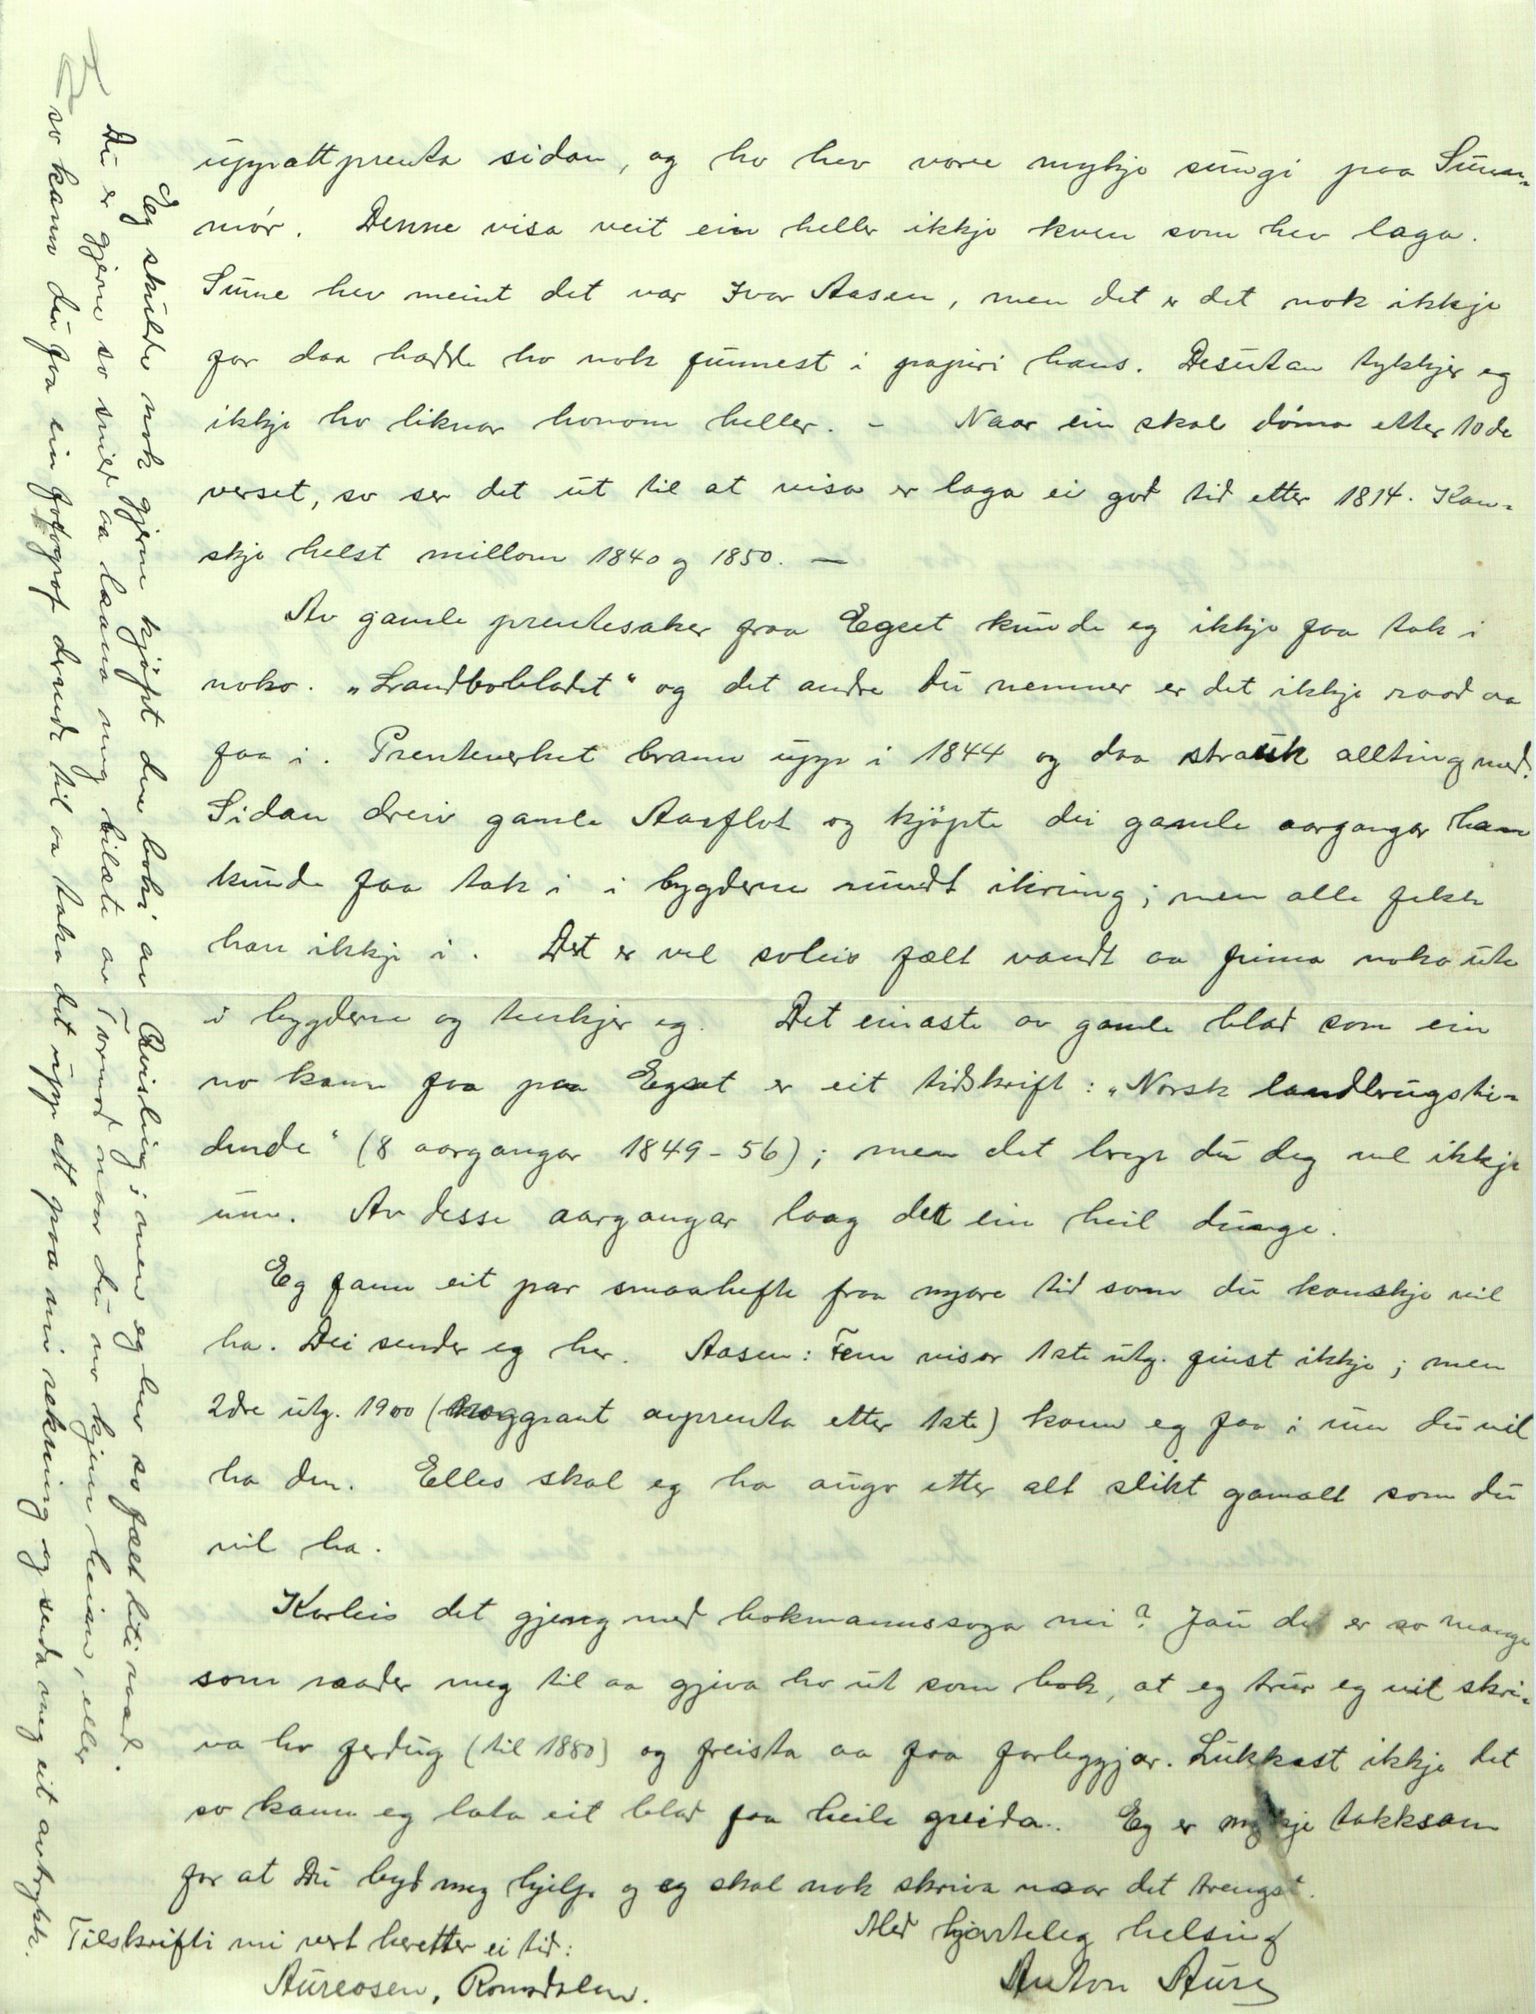 uppattprenta sidan, og ho hev vore mykje sungi paa Sunn-
mør. Denne visa veit ein heller ikkje kven som hev laga.
Sume hev meint det var Ivar Aasen, men det er det nok ikkje
for daa hadde ho nok funnest i papiri hans. Desutan tykkjer eg
ikkje ho liknar honom heller. - Naar ein skal døma etter 10de
verset, so ser det ut til at visa er laga ei god tid etter 1814. Kan-
skje helst millom 1840 og 1850. —
Av gamle prentesaker fraa Egset kunde eg ikkje faa tak i
noko. „Landbobladet“ og det andre du nemner er det ikkje raad aa
faa i. Prenteverket brann upp i 1844 og daa strauk allting med.
Sidan dreiv gamle Aarflot og kjøpte dei gamle aargangar han
kunde faa tak i i bygderne rundt ikring; men alle fekk
han ikkje i. Det er vel soleis fælt vandt aa finna noko ute
i bygderne og tenkjer eg. Det einaste av gamle blad som ein
no kann faa paa Egset er eit tidskrift: „Norsk landbrugsti-
dende“ (8 aargangar 1849-56); men det bryr du deg vel ikkje
um. Av desse aargangar laag det ein heil dunge.
Eg fann eit par smaahefte fraa nyare tid som du kanskje vil
ha. Dei sender eg her. Aasen: Fem visor 1ste utg. finst ikkje; men
2dre utg. 1900 (noggrant avprenta etter 1ste) kann eg faa i um du vil
ha den. Elles skal eg ha augo etter alt slikt gamalt som du
vil ha.
Korleis det gjeng med bokmannssoga mi? Jau det er so mange
som raader meg til aa gjeva ho ut som bok, at eg trur eg vil skri-
va ho ferdug (til 1880) og freista aa faa forleggjar. Lukkast ikkje det
so kann eg lata eit blad faa heile greida. Eg er mykje takksam
for at Du byd meg hjelp og eg skal nok skriva naar det trengst.
Med hjarteleg helsing
Anton Aure
Tilskrifti mi vert heretter ei tid:
Aureosen, Romsdalen.
Eg skulde nok gjerne kjøpt den boki av Qvisling; men eg hev so fælt liti raad.
Du er gjerne so snild aa laana meg bilæte av Tormod naar du no kjem heim, eller
so kann du faa ein fotograf derude til aa taka det upp att paa mi rekning og senda meg eit avtrykk.